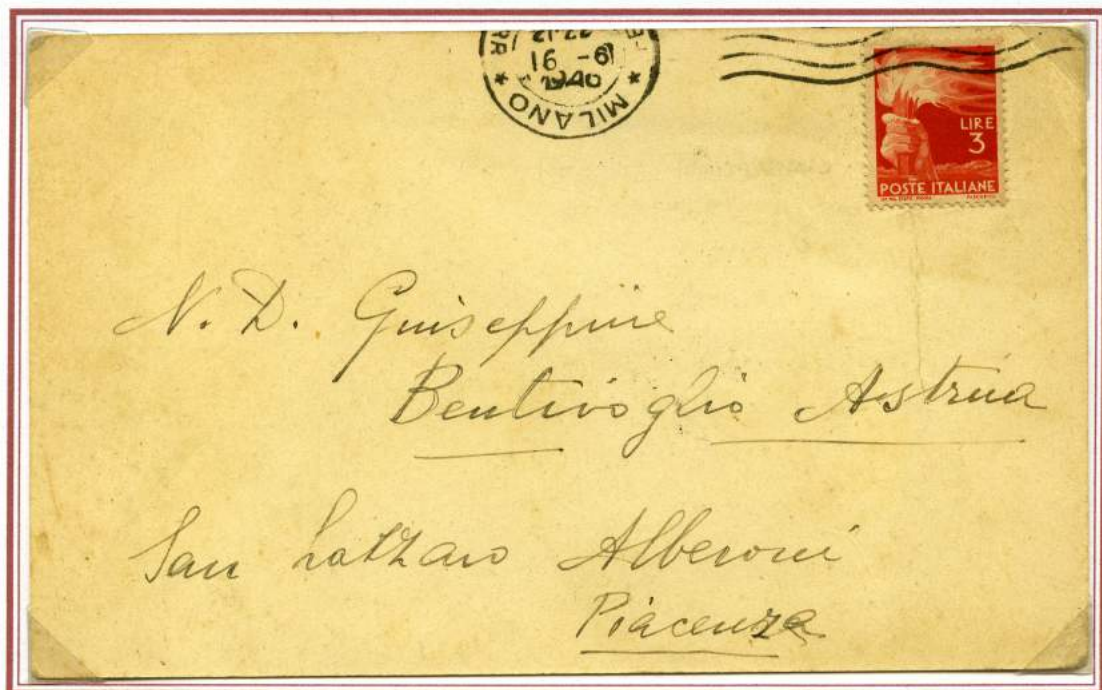 16 -6
1946
* MILANO *
LIRE
3
POSTE ITALIANE
N. D. Giuseppina
Bentivoglio Astrua
San Lazzaro Alberoni
Piacenza